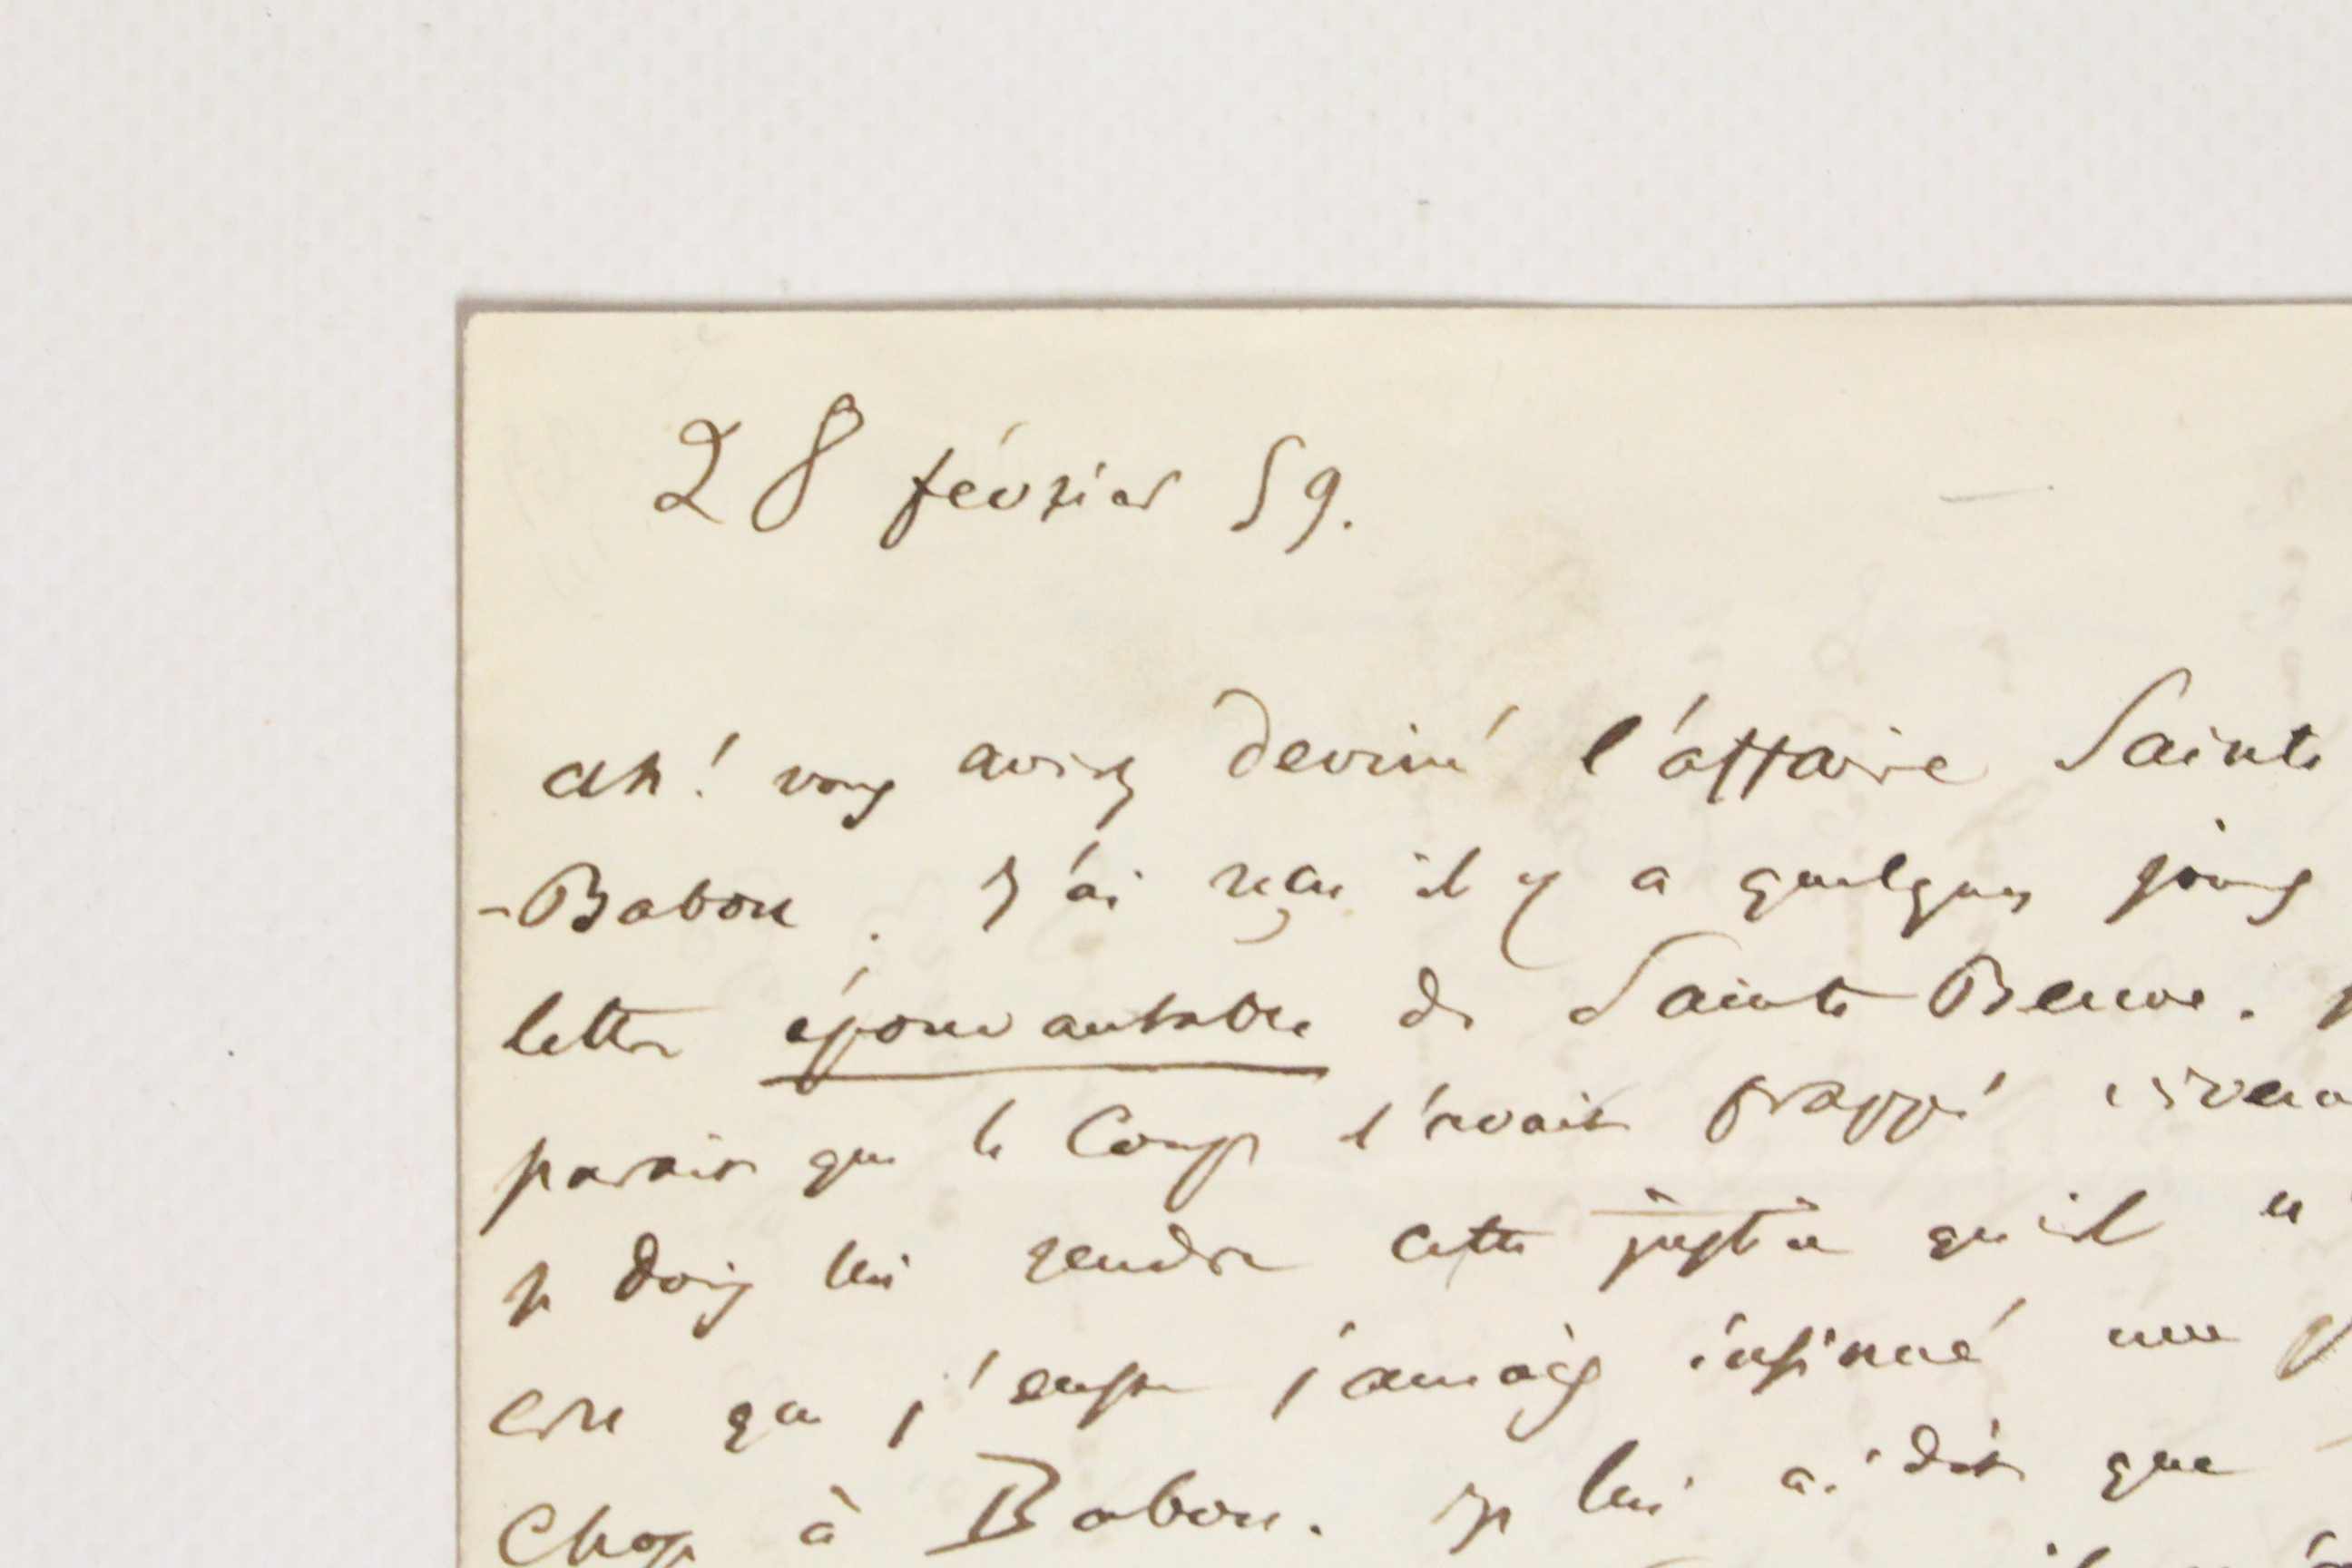 28 février 59.
Ah! vous aviez deviné l'affaire Sainte
-Babou. J'ai reçu il y a quelques jours
lettre épouvantable de Sainte Beuve.
paraît que le coup l'avait frappé
je dois lui rendre cette justice qu'il
cru que j'eusse jamais insinué une
chose à Babou. Je lui ai dit que